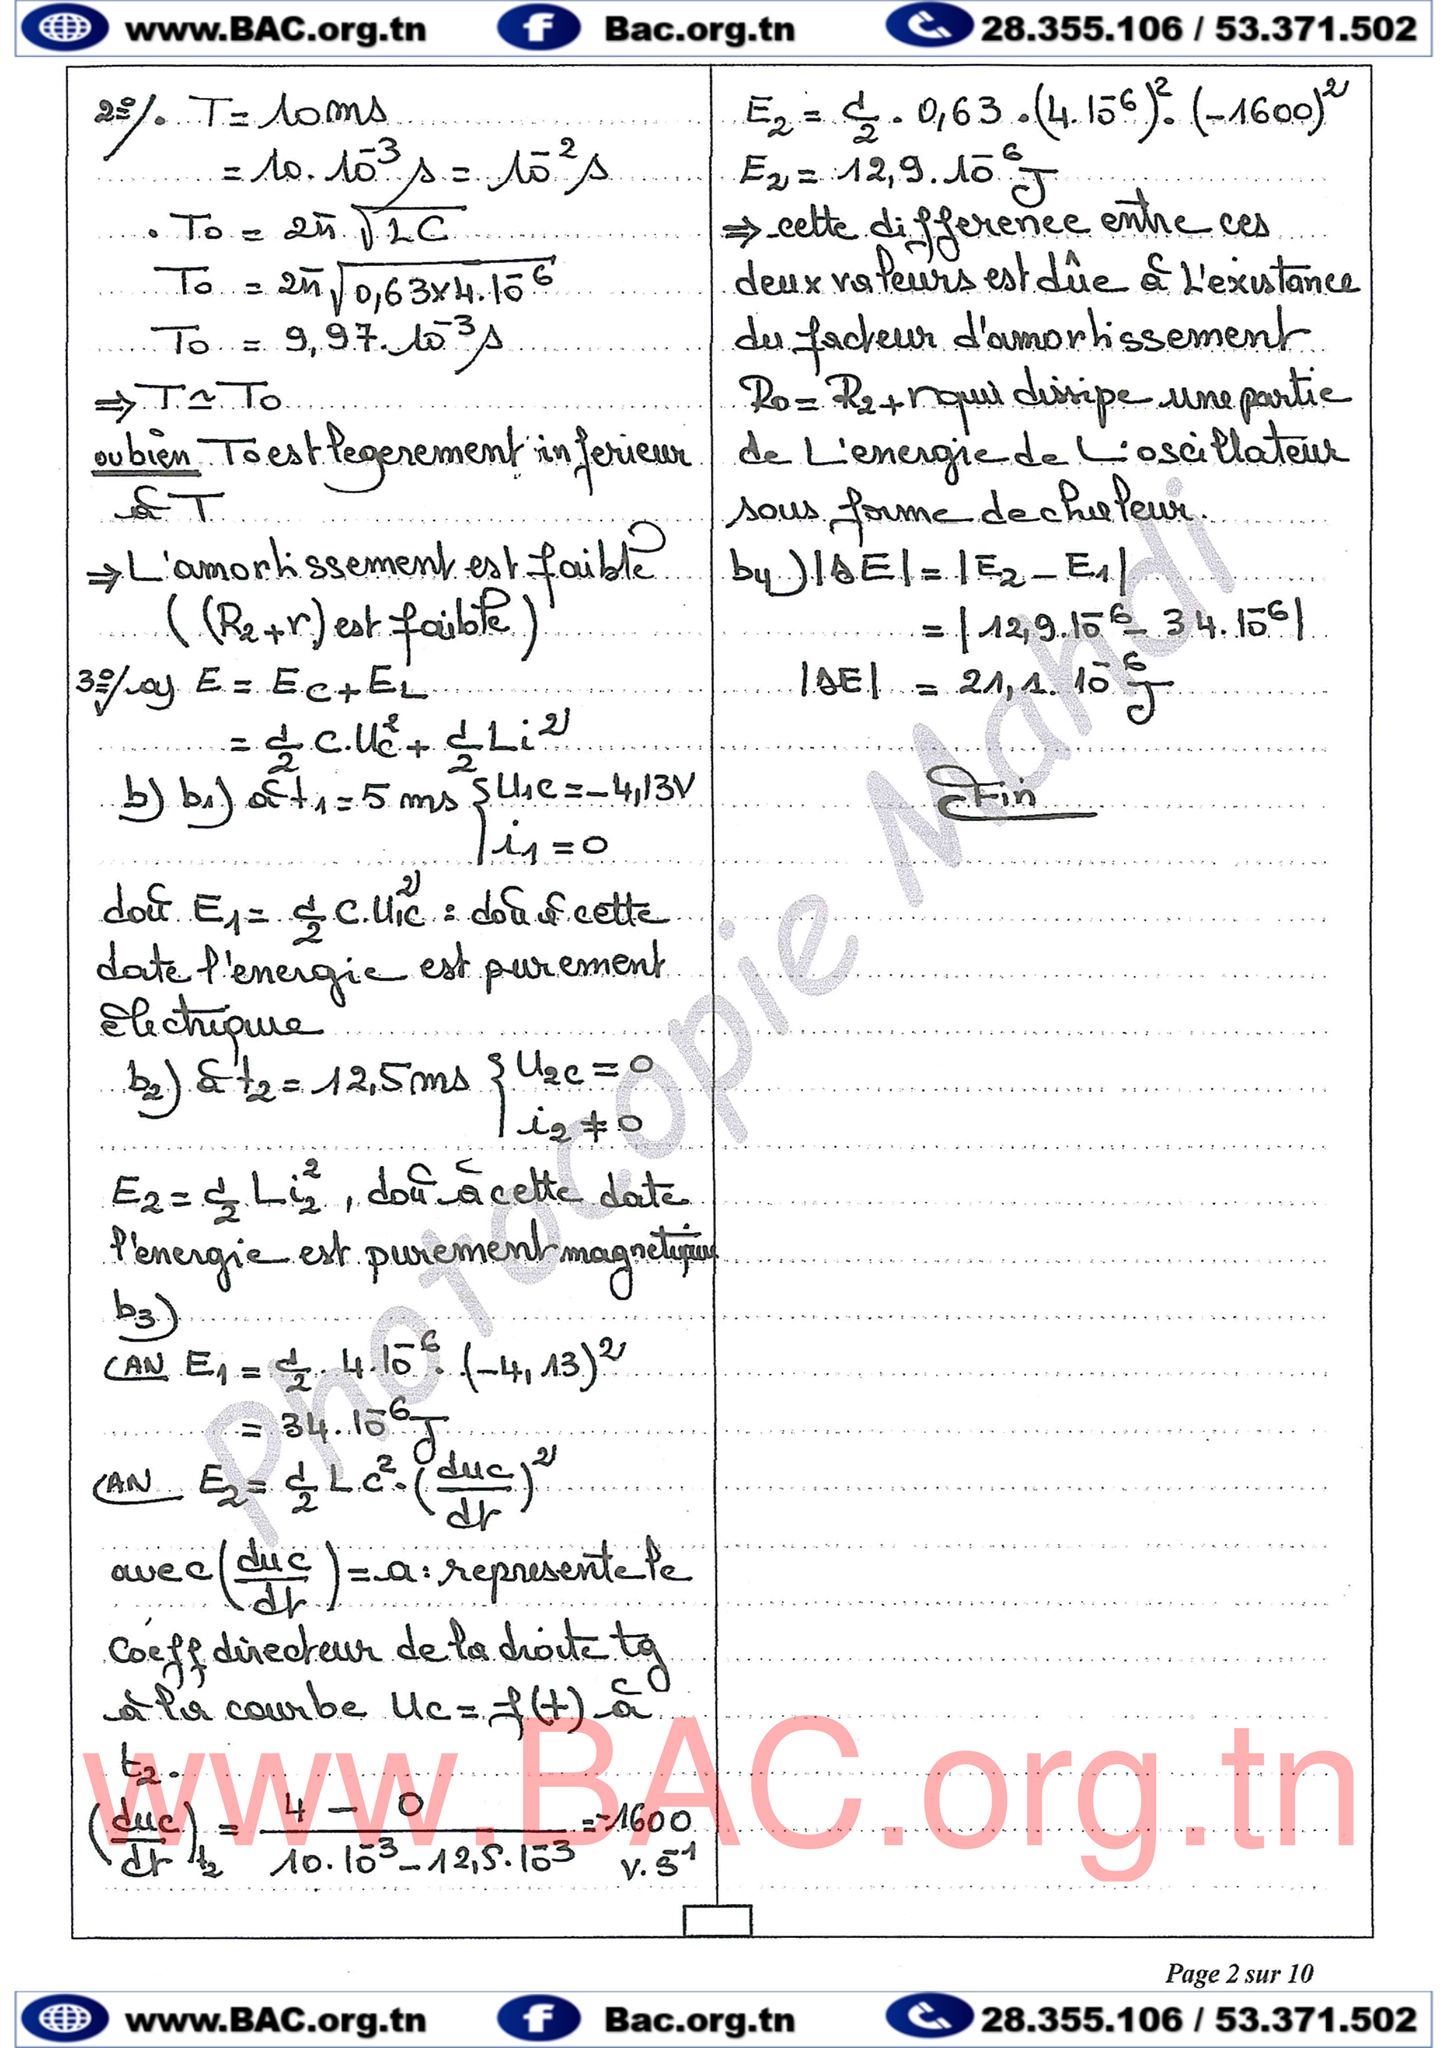 www.BAC.org.tn Bac.org.tn 28.355.106 / 53.371.502
2°/. T = 10 ms
= 10.10⁻³ s = 10⁻² s
. T₀ = 2π √LC
T₀ = 2π √0,63x4.10⁻⁶
T₀ = 9,97.10⁻³ s
⇒ T ≃ T₀
ou bien T₀ est legerement inferieur
à T
⇒ L'amortissement est faible
((R₂+r) est faible)
3°/ a) E = E_C + E_L
= 1/2 C.U_C² + 1/2 L i²
b) b₁) à t₁ = 5 ms { U₁c = -4,13V
i₁ = 0
doù E₁ = 1/2 C.U₁c² : doù à cette
date l'energie est purement
électrique
b₂) à t₂ = 12,5 ms { U₂c = 0
i₂ ≠ 0
E₂ = 1/2 L i₂², doù à cette date
l'energie est purement magnetique
b₃)
AN E₁ = 1/2 . 4.10⁻⁶ . (-4,13)²
= 34.10⁻⁶ J
AN E₂ = 1/2 L C² . (duc/dt)²
avec (duc/dt) = a : represente le
coéff directeur de la droite tg
à la courbe Uc = f(t) à
t₂.
(duc/dt)t₂ = 4 - 0 / 10.10⁻³ - 12,5.10⁻³ = -1600
V.s⁻¹
E₂ = 1/2 . 0,63 . (4.10⁻⁶)² . (-1600)²
E₂ = 12,9.10⁻⁶ J
⇒ cette difference entre ces
deux valeurs est dûe à L'existance
du facteur d'amortissement
R₀ = R₂+r qui dissipe une partie
de L'energie de L'oscillateur
sous forme de chaleur.
b₄) |ΔE| = |E₂ - E₁|
= |12,9.10⁻⁶ - 34.10⁻⁶|
|ΔE| = 21,1.10⁻⁶ J
Fin
Photocopie Mahdi
www.BAC.org.tn
Page 2 sur 10
www.BAC.org.tn Bac.org.tn 28.355.106 / 53.371.502